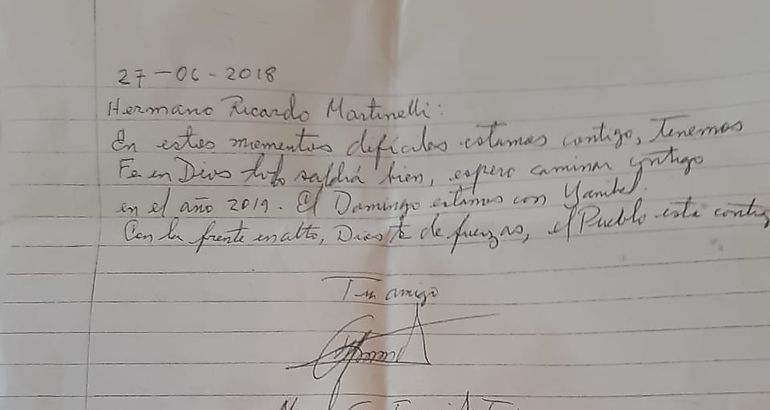 27-06-2018
Hermano Ricardo Martinelli:
En estos momentos dificiles estamos contigo, Tenemos
Fe en Dios todo saldrá bien, espero caminar contigo
en el año 2019. El Domingo estamos con Yanibel.
Con la frente en alto, Dios te de fuerzas, el Pueblo esta contig
Tu amigo